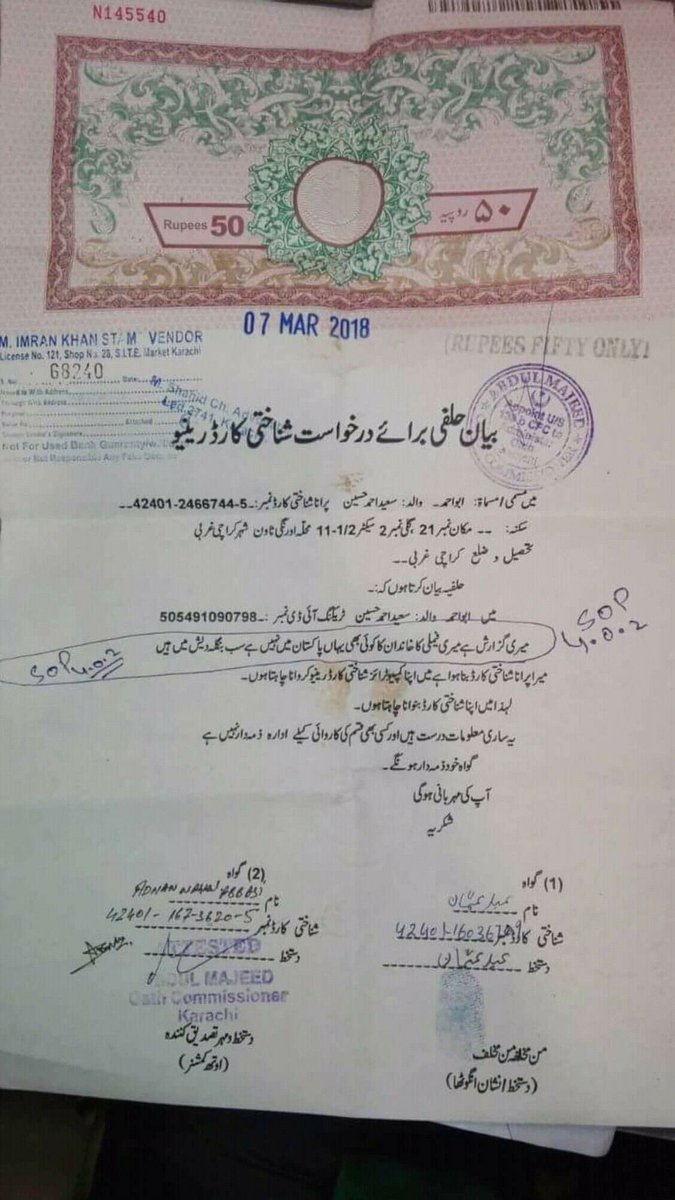 N145540
Rupees 50
۵۰ روپیہ
07 MAR 2018
(RUPEES FIFTY ONLY)
M. IMRAN KHAN STAM VENDOR
License No. 121, Shop No. 28, S.I.T.E. Market Karachi
68240
Date
M. Shahid Ch. Ad
Led 2741
Not For Used Bank
ABDUL MAJEED
Appoint U/S
CPC to
Oath
بیان حلفی برائے درخواست شناختی کارڈ رینیو
میں مسمی / مسماۃ: ابو احمد۔ والد: سعید احمد حسین پرانا شناختی کارڈ نمبر:۔ 42401-2466744-5--
سکنہ: -- مکان نمبر 21، گلی نمبر 2 سیکٹر 11-1/2 محلہ اورنگی ٹاون شہر کراچی غربی
تحصیل و ضلع کراچی غربی--
حلفیہ بیان کرتا ہوں کہ:۔
میں ابو احمد والد: سعید احمد حسین ٹریکنگ آئی ڈی نمبر:۔ 505491090798
SOP 4.0.2
میری گزارش ہے میری فیملی کا خاندان کا کوئی بھی یہاں پاکستان میں نہیں ہے سب بنگلہ دیش میں ہیں
SOP 4.0.2
میرا پرانا شناختی کارڈ بنا ہوا ہے میں اپنا کمپیوٹرائز شناختی کارڈ رینیو کروانا چاہتا ہوں۔
لہذا میں اپنا شناختی کارڈ بنوانا چاہتا ہوں۔
یہ ساری معلومات درست ہیں اور کسی بھی قسم کی کاروائی کیلئے ادارہ ذمہ دار نہیں ہے
گواہ خود ذمہ دار ہونگے۔
آپ کی مہربانی ہوگی
شکریہ
(1) گواہ
نام عبید عثمان
شناختی کارڈ نمبر
دستخط عبید عثمان
من مخلفہ من مخلف
(دستخط / نشان انگوٹھا)
(2) گواہ
نام ADNAN NAWAZ ABBASI
شناختی کارڈ نمبر 42401-167-3620-5
دستخط
ATTESTED
ABDUL MAJEED
Oath Commissioner
Karachi
دستخط و مہر تصدیق کنندہ
(اوتھ کمشنر)